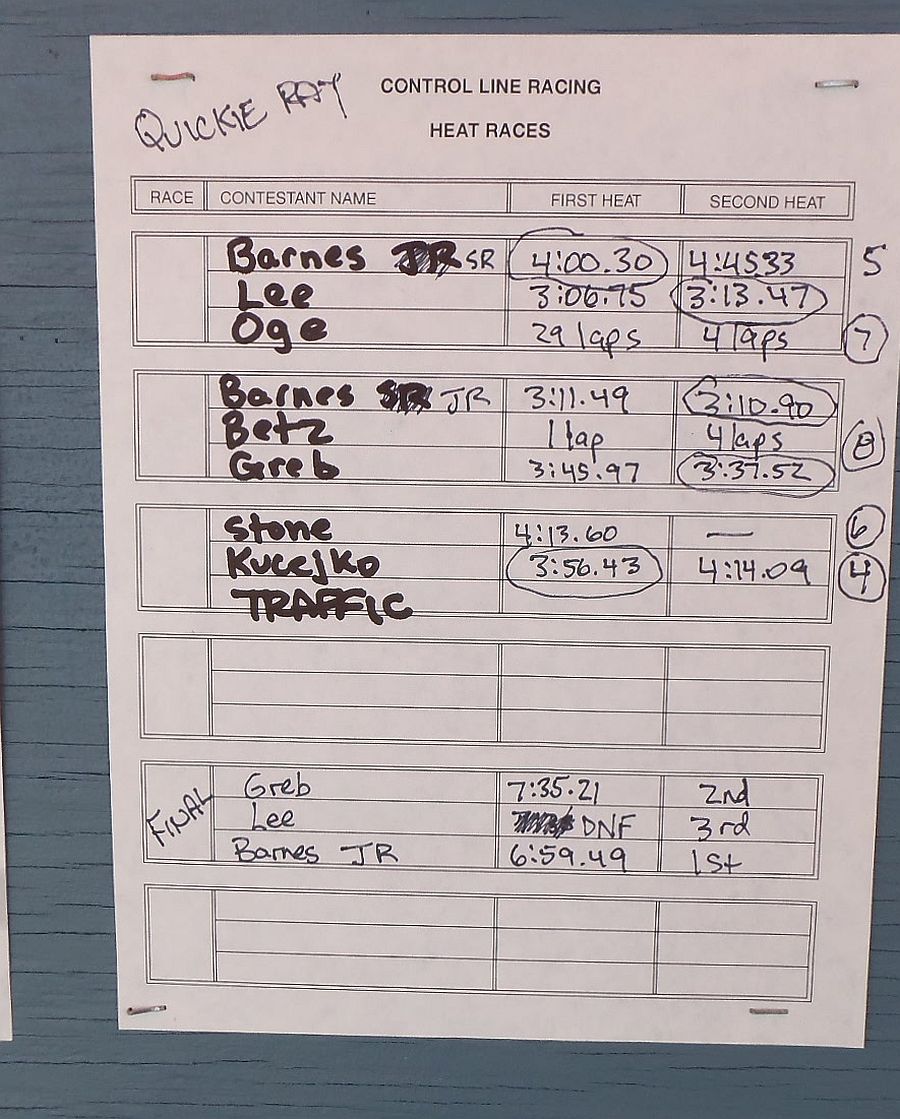 QUICKIE RAT
CONTROL LINE RACING
HEAT RACES
RACE CONTESTANT NAME FIRST HEAT SECOND HEAT
Barnes JR SR 4:00.30 4:45.33 5
Lee 3:06.75 3:13.47
Oge 29 laps 4 laps 7
Barnes SR JR 3:11.49 3:10.90
Betz 1 lap 4 laps 8
Greb 3:45.97 3:37.52
Stone 4:13.60 — 6
Kucejko 3:56.43 4:14.09 4
TRAFFIC
FINAL
Greb 7:35.21 2nd
Lee DNF 3rd
Barnes JR 6:59.49 1st